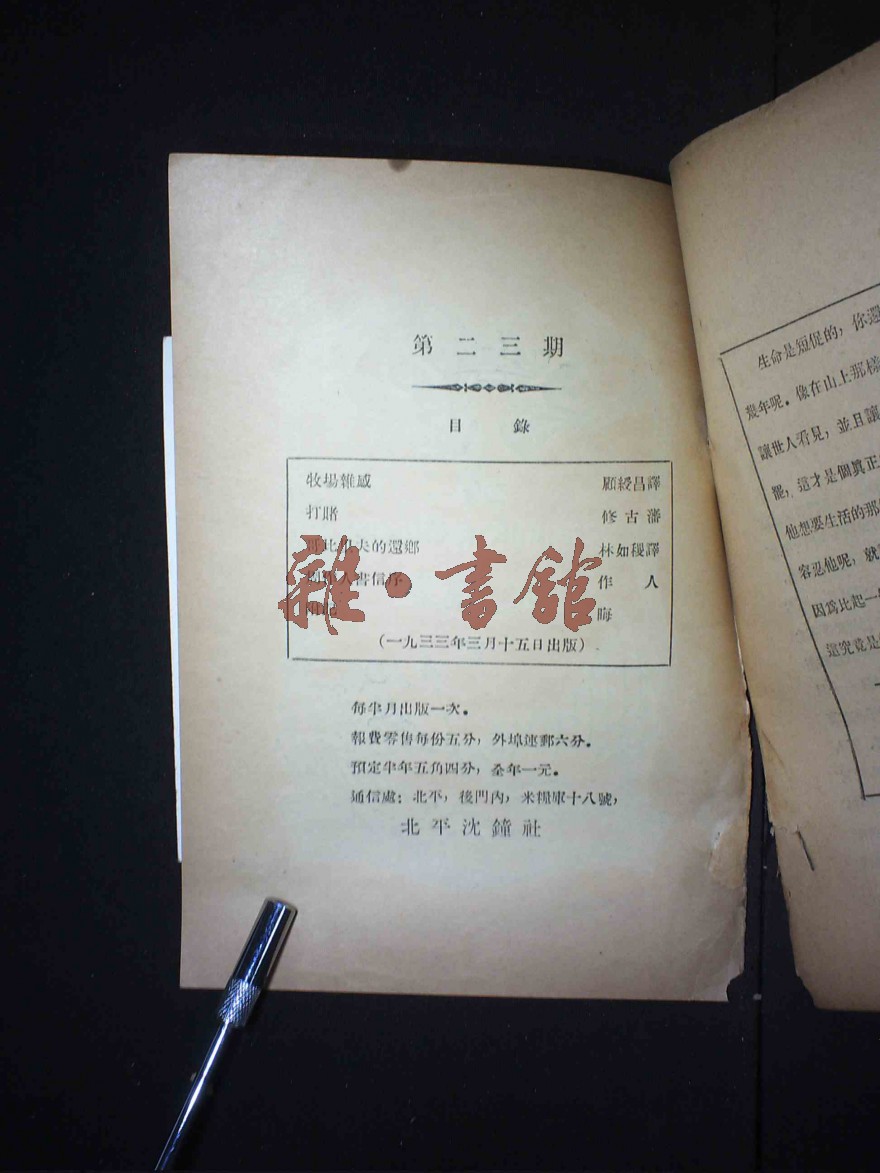 第二三期
目錄
牧場雜感 顧綬昌譯
打賭 修古藩
夫的還鄉 林如稷譯
人書信序 作人
晦
(一九三三年三月十五日出版)
每半月出版一次。
報費零售每份五分,外埠連郵六分。
預定半年五角四分,全年一元。
通信處:北平,後門內,米糧軍十八號,
北平沈鐘社
雜·書館
生命是短促的,你還
幾年呢。像在山上那樣
讓世人看見,並且讓
罷,這才是個眞正
他想要生活的那
容忍他呢,就
因爲比起一
這究竟是